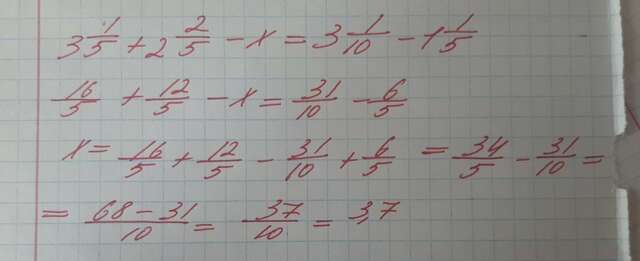 3 1/5 + 2 2/5 - x = 3 1/10 - 1 1/5
16/5 + 12/5 - x = 31/10 - 6/5
x = 16/5 + 12/5 - 31/10 + 6/5 = 34/5 - 31/10 =
= 68 - 31/10 = 37/10 = 3,7